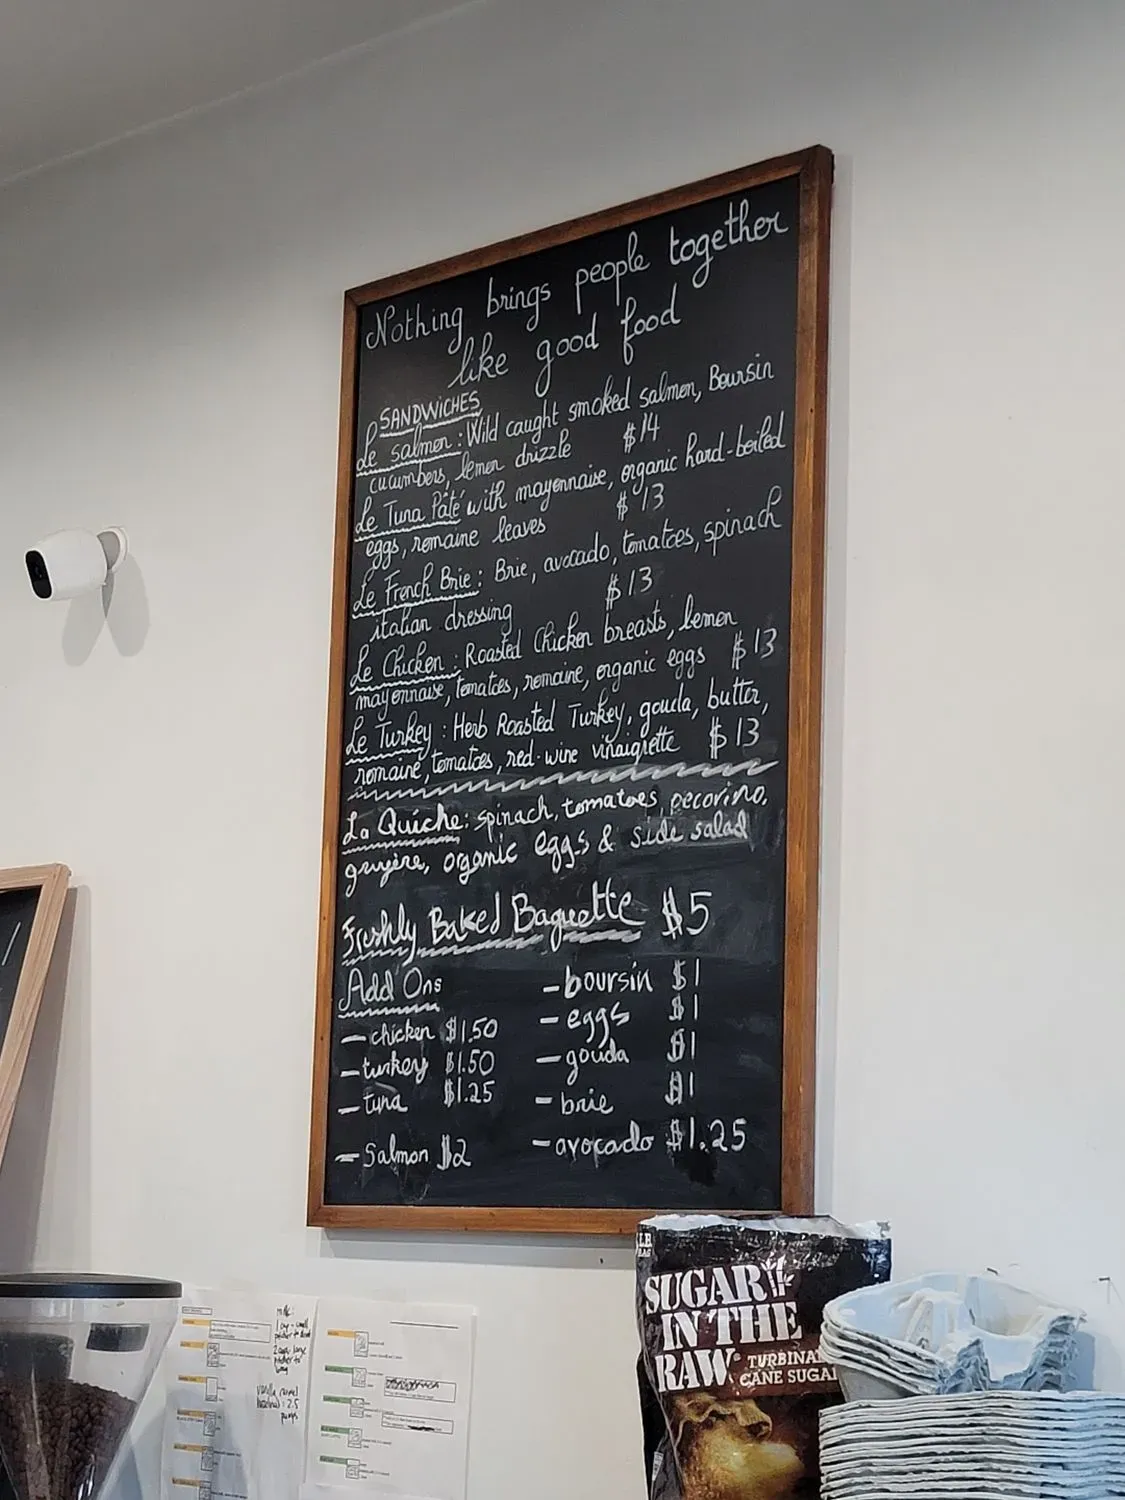 Nothing brings people together
like good food
SANDWICHES
Le salmon : Wild caught smoked salmon, Boursin
cucumbers, lemon drizzle $14
Le Tuna Pâté with mayonnaise, organic hard-boiled
eggs, romaine leaves $13
Le French Brie : Brie, avocado, tomatoes, spinach
italian dressing $13
Le Chicken : Roasted Chicken breasts, lemon
mayonnaise, tomatoes, romaine, organic eggs $13
Le Turkey : Herb Roasted Turkey, gouda, butter,
romaine, tomatoes, red-wine vinaigrette $13
La Quiche: spinach, tomatoes, pecorino,
gruyère, organic eggs & side salad
Freshly Baked Baguette $5
Add Ons
- chicken $1.50
- turkey $1.50
- tuna $1.25
- Salmon $2
- boursin $1
- eggs $1
- gouda $1
- brie $1
- avocado $1.25
SUGAR
IN THE
RAW
CANE SUGAR
milk: